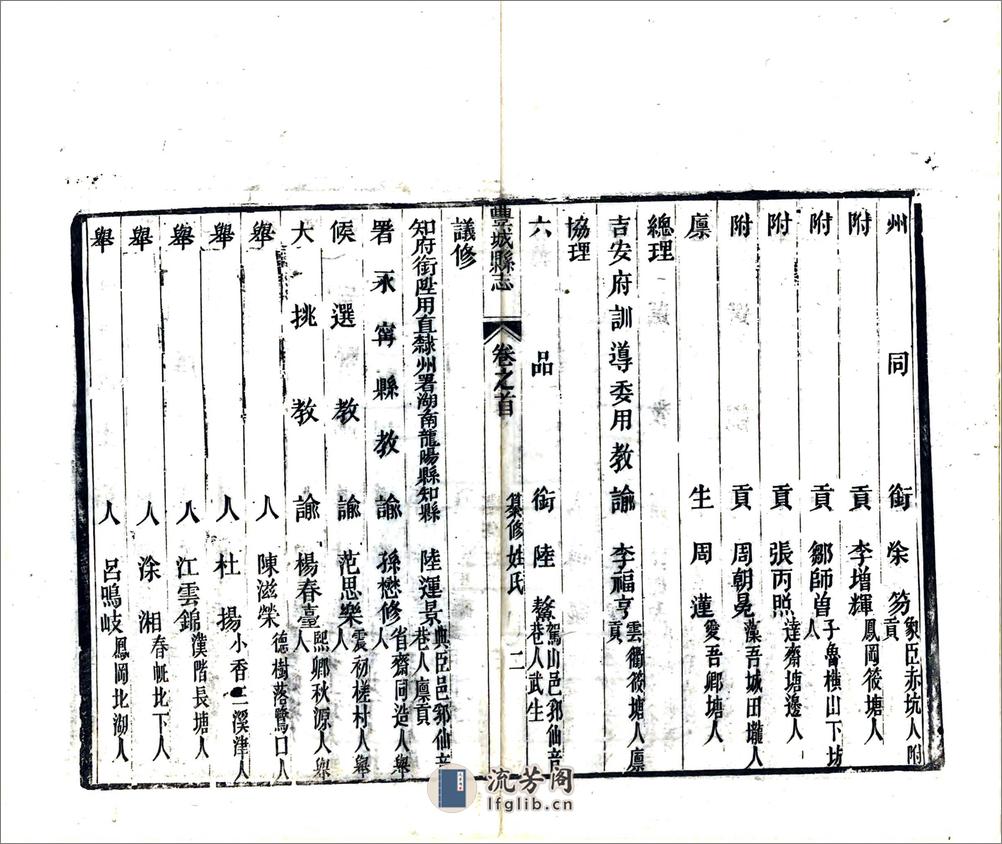 州同銜涂笏 象臣赤坑人附貢
附貢李增輝 鳳岡筱塘人
附貢鄒師曾 子魯橫山下坊人
附貢張丙照 達齋塘邊人
附貢周朝冕 藻吾城田壠人
廩生周蓮 愛吾鄉塘人
總理
吉安府訓導委用教諭李福亨 雲衢筱塘人廩貢
協理
六品銜陸鰲 駕山邑郭仙音巷人武生
豐城縣志 卷之首 纂修姓氏 二
議修
知府銜陞用直隸州署湖南龍陽縣知縣陸運景 典臣邑郭仙音巷人廩貢
署永寧縣教諭孫懋修 省齋同造人舉人
候選教諭范思樂 震初槎村人舉人
大挑教諭楊春臺 熙卿秋源人舉人
舉人陳滋榮 德樹落鷺口人
舉人杜揚 小香二溪津人
舉人江雲錦 濮階長塘人
舉人涂湘 春帆北下人
舉人呂鳴岐 鳳岡北湖人
流芳阁
lfglib.cn